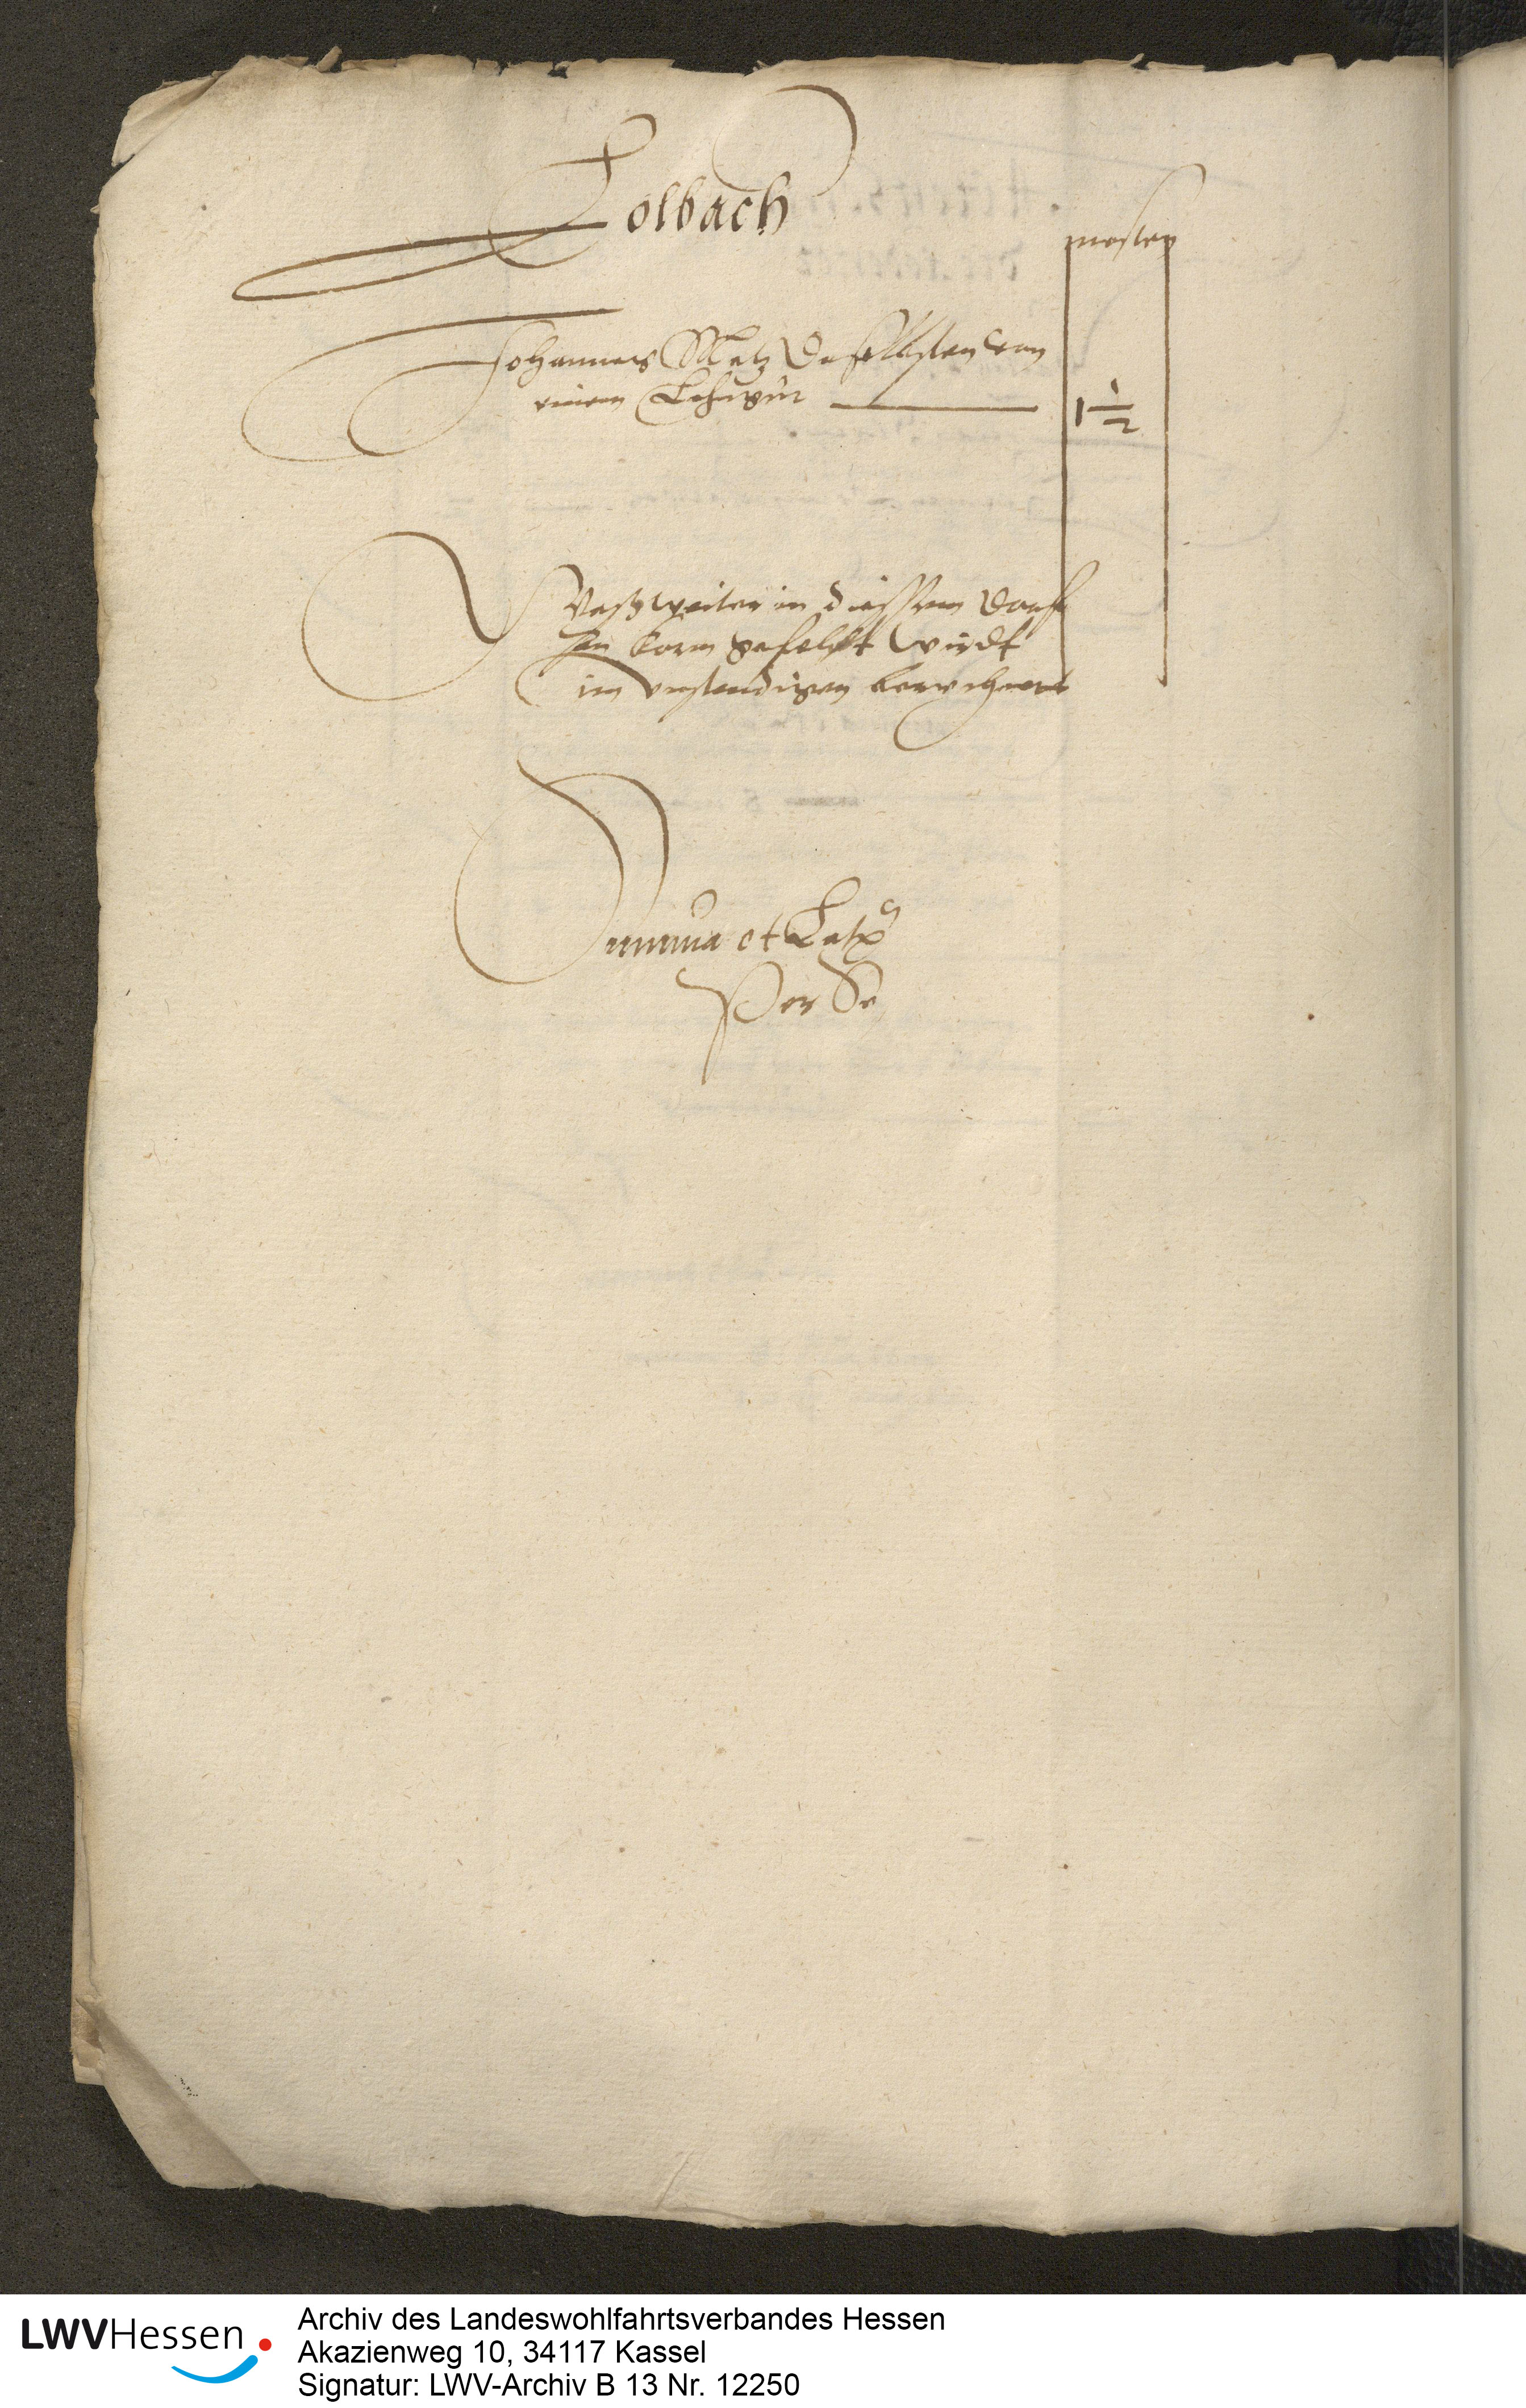 Dolbach
mesten
Johannes Metz daselbsten von
einem Lehngut 1 1/2
Waß weiter in diessem Dorf
an Korn gefelt wirdt
im Unstendigen berechnet
Summa et Lats
Per Se
LWVHessen
Archiv des Landeswohlfahrtsverbandes Hessen
Akazienweg 10, 34117 Kassel
Signatur: LWV-Archiv B 13 Nr. 12250